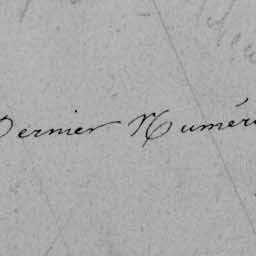 Dernier Numéro